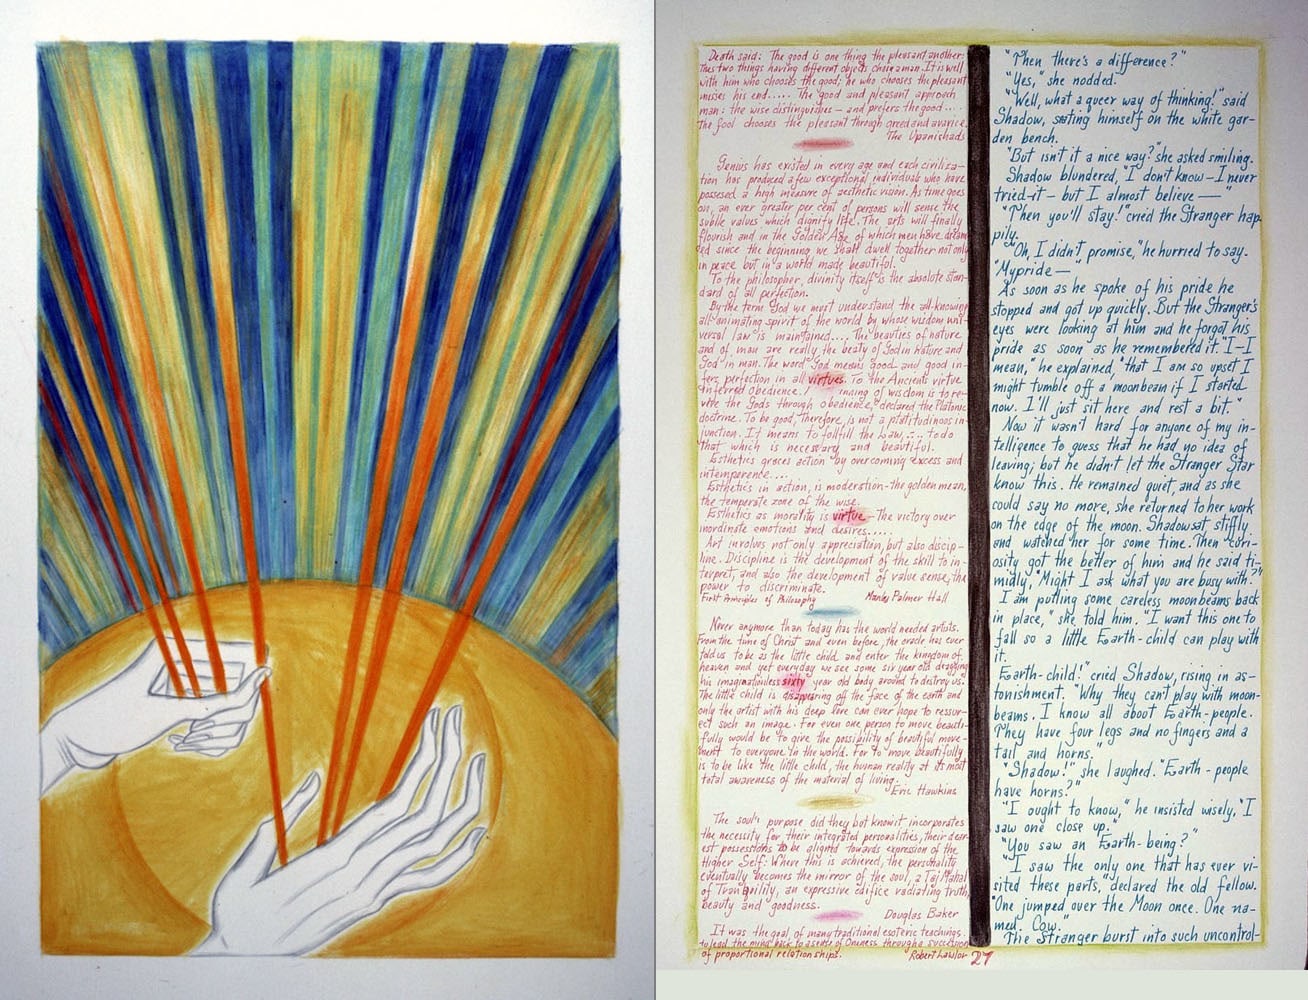 Death said: The good is one thing the pleasant another:
This two things having different objects chain a man. It is well
with him who chooses the good; he who chooses the pleasant
misses his end..... The good and pleasant approach
man: the wise distinguishes – and prefers the good....
The fool chooses the pleasant through greed and avarice.
The Upanishads
Genius has existed in every age and each civiliza-
tion has produced a few exceptional individuals who have
possesed a high measure of aesthetic vision. As time goes
on, an ever greater per cent of persons will sense the
subtle values which dignify life. The arts will finally
flourish and in the Golden Age of which men have dream-
ed since the beginning we shall dwell together not only
in peace but in a world made beautiful.
To the philosopher, divinity itself is the absolute stan-
dard of all perfection.
By the term God we must understand the all-knowing
all-animating spirit of the world by whose wisdom uni-
versal law is maintained.... The beauties of nature
and of man are really the beaty of God in Nature and
God in man. The word God means good and good in-
fers perfection in all virtues. To the Ancients virtue
inferred obedience. of wisdom is to re-
vere the Gods through obedience," declared the Platonic
doctrine. To be good, therefore, is not a platitudinous in-
junction. It means to fullfill the Law,... to do
that which is necessary and beautiful.
Esthetics graces action by overcoming excess and
intemperance....
Esthetics in action, is moderation – the golden mean,
the temperate zone of the wise.
Esthetics as morality is virtue – The victory over
inordinate emotions and desires.....
Art involves not only appreciation, but also discip-
line. Discipline is the development of the skill to in-
terpret, and also the development of value sense, the
power to discriminate.
First Principles of Philosophy Manley Palmer Hall
Never anymore than today has the world needed artists.
From the time of Christ and even before, the oracle has ever
told us to be as the little child and enter the kingdom of
heaven and yet everyday we see some six year old dragging
his imaginationless sixty year old body around to destroy us.
The little child is disappearing off the face of the earth and
only the artist with his deep lore can ever hope to ressur-
ect such an image. For even one person to move beauti-
fully would be to give the possibility of beautiful move-
ment to everyone in the world. For to move beautifully
is to be like the little child, the human reality at its most
total awareness of the material of living.
Eric Hawkins
The soul's purpose did they but know it incorporates
the necessity for their integrated personalities, their dear-
est possessions to be aligned towards expression of the
Higher Self: Where this is achieved, the personality
eventually becomes the mirror of the soul, a Taj Mahal
of Tranquility, an expressive edifice radiating truth,
beauty and goodness.
Douglas Baker
It was the goal of many traditional esoteric teachings
to lead the mind back to a sense of Oneness through a succession
of proportional relationships. Robert Lawlor
27
"Then there's a difference?"
"Yes," she nodded.
"Well, what a queer way of thinking!" said
Shadow, seating himself on the white gar-
den bench.
"But isn't it a nice way?" she asked smiling.
Shadow blundered, "I don't know – I never
tried it – but I almost believe —"
"Then you'll stay!" cried the Stranger hap-
pily.
"Oh, I didn't promise," he hurried to say.
"My pride —
As soon as he spoke of his pride he
stopped and got up quickly. But the Stranger's
eyes were looking at him and he forgot his
pride as soon as he remembered it. "I – I
mean," he explained, "that I am so upset I
might tumble off a moonbeam if I started
now. I'll just sit here and rest a bit."
Now it wasn't hard for anyone of my in-
telligence to guess that he had no idea of
leaving; but he didn't let the Stranger Star
know this. He remained quiet, and as she
could say no more, she returned to her work
on the edge of the moon. Shadow sat stiffly
and watched her for some time. Then curi-
osity got the better of him and he said ti-
midly, "Might I ask what you are busy with?"
I am putting some careless moonbeams back
in place," she told him. "I want this one to
fall so a little Earth-child can play with
it.
Earth-child!" cried Shadow, rising in as-
tonishment. "Why they can't play with moon-
beams. I know all about Earth-people.
They have four legs and no fingers and a
tail and horns."
"Shadow!" she laughed. "Earth-people
have horns?"
"I ought to know," he insisted wisely, "I
saw one close up."
"You saw an Earth-being?"
"I saw the only one that has ever vi-
sited these parts," declared the old fellow.
"One jumped over the Moon once. One na-
med. Cow."
The Stranger burst into such uncontrol-